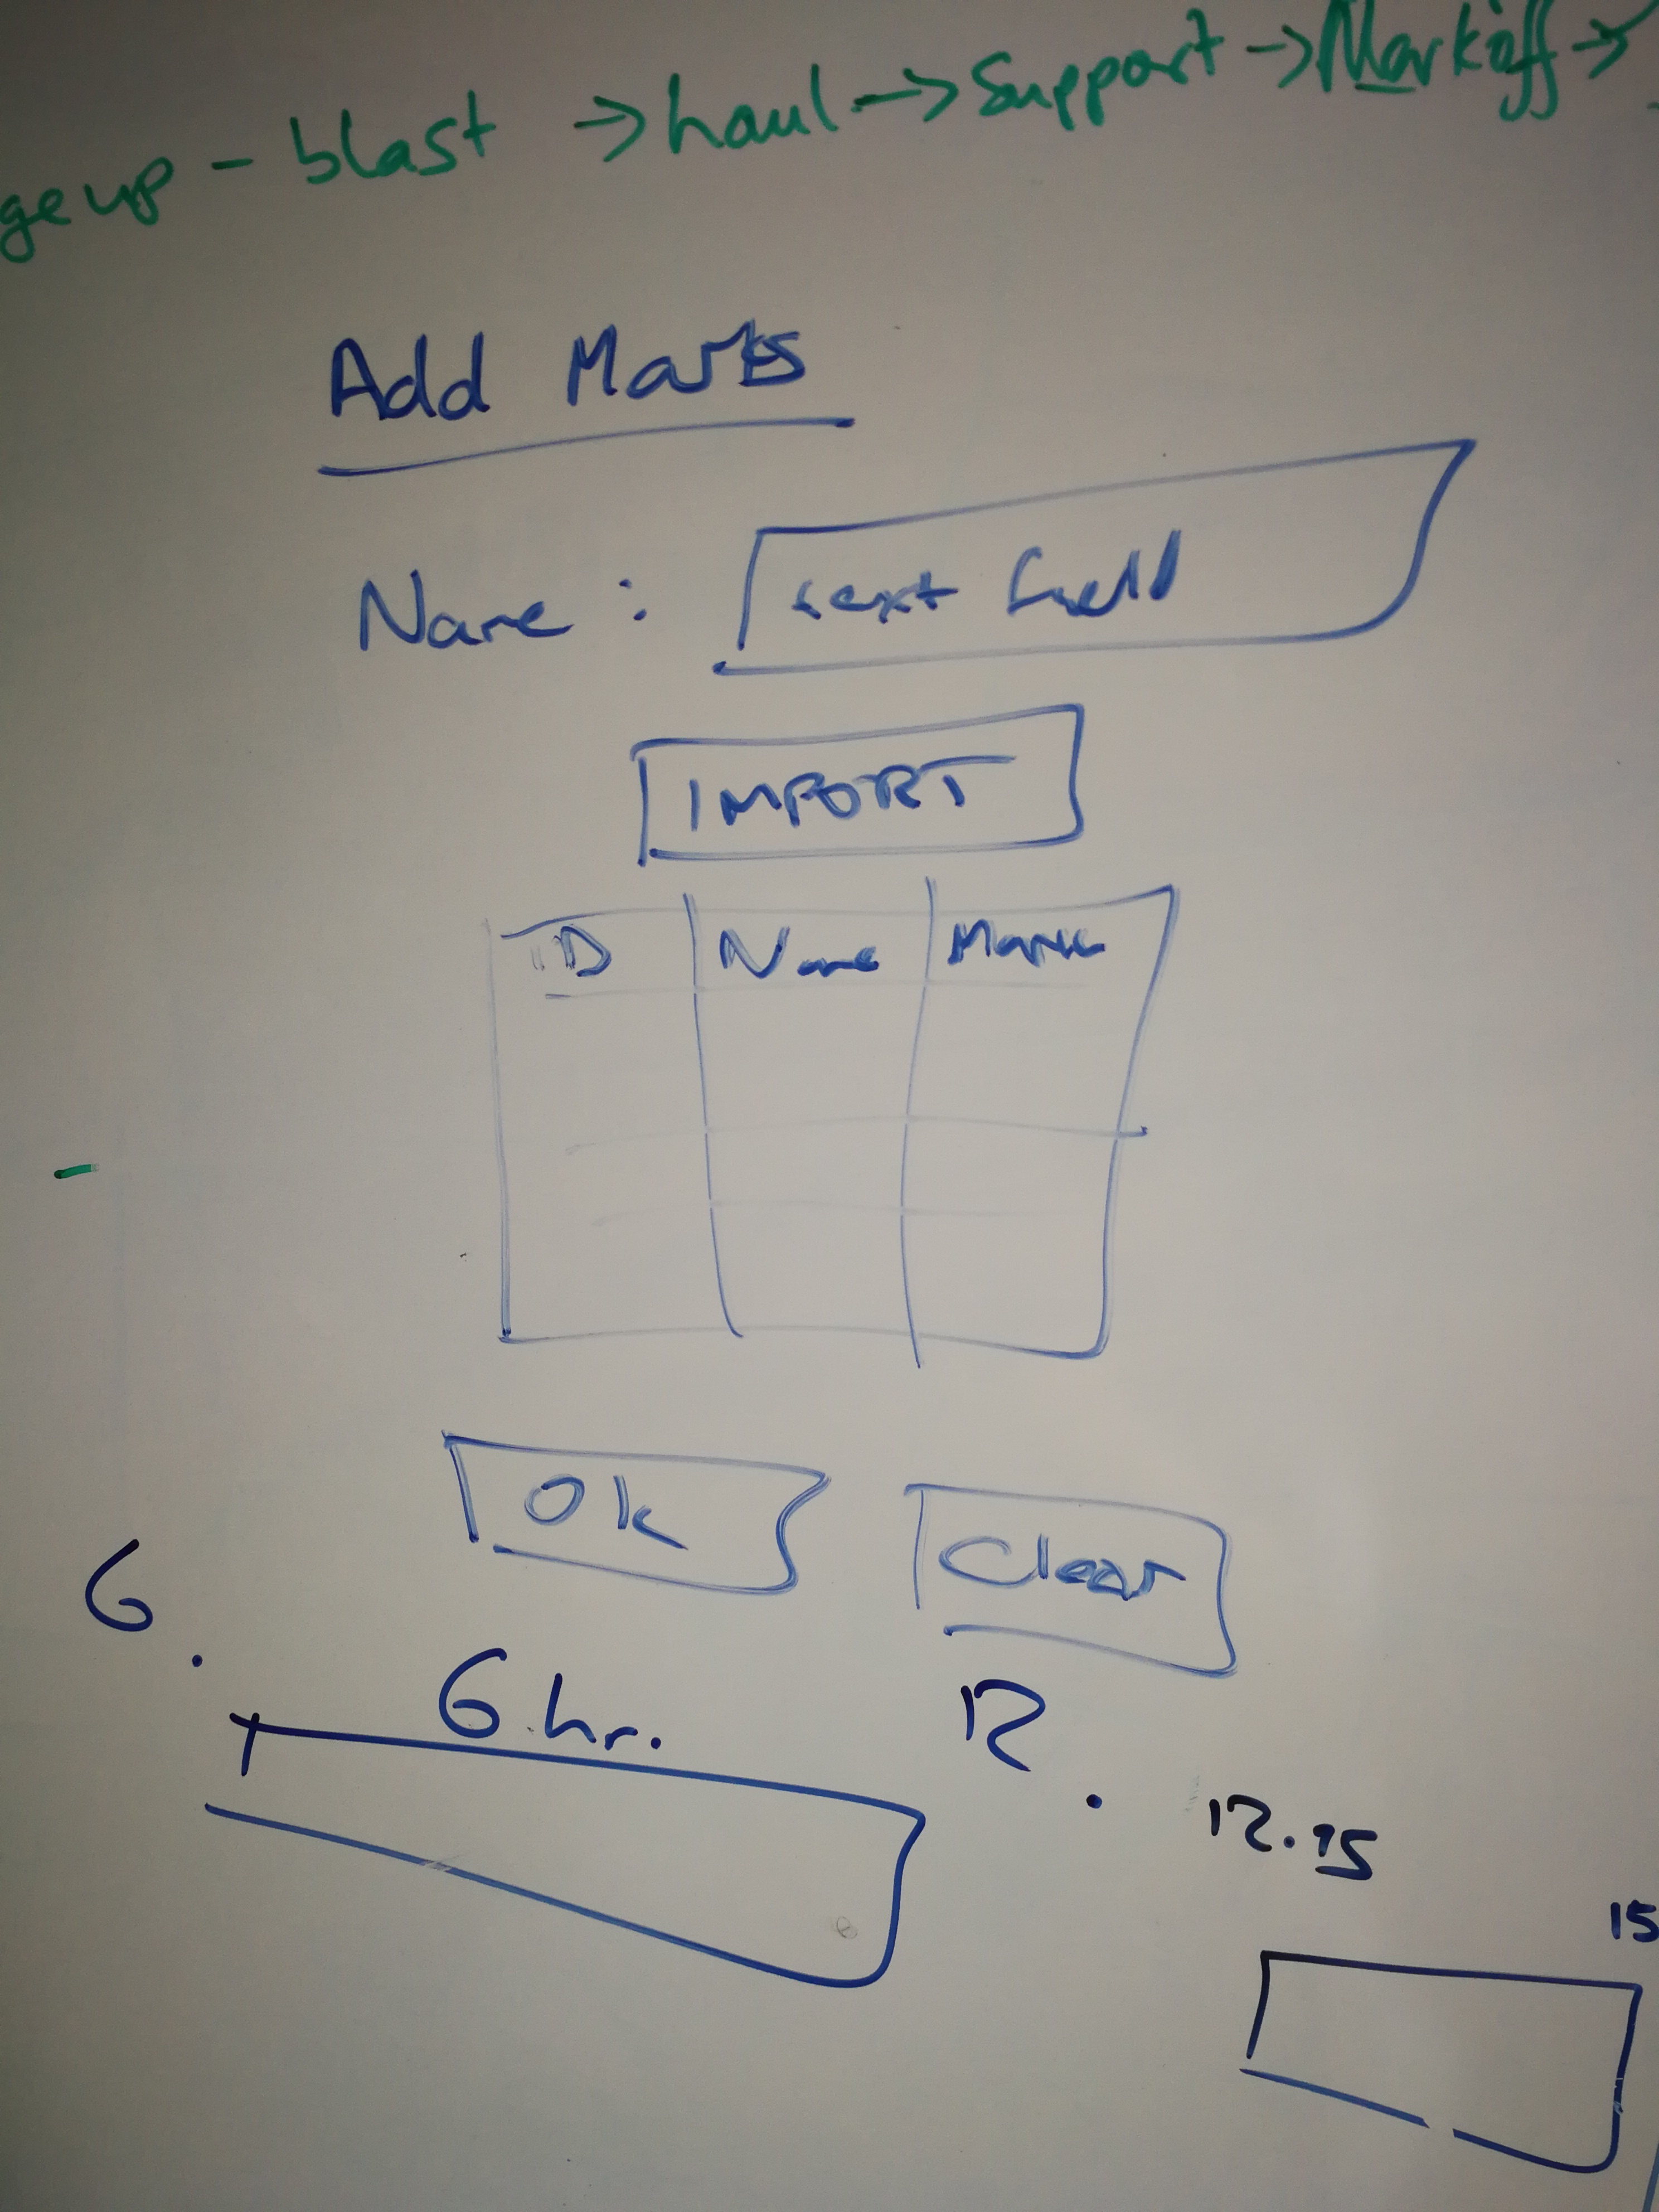 geup - blast → haul → Support → Markoff →
Add Marks
Name : text field
IMPORT
ID Name Mark
Ok Clear
6 .
6 hr. 12 .
12.15
15